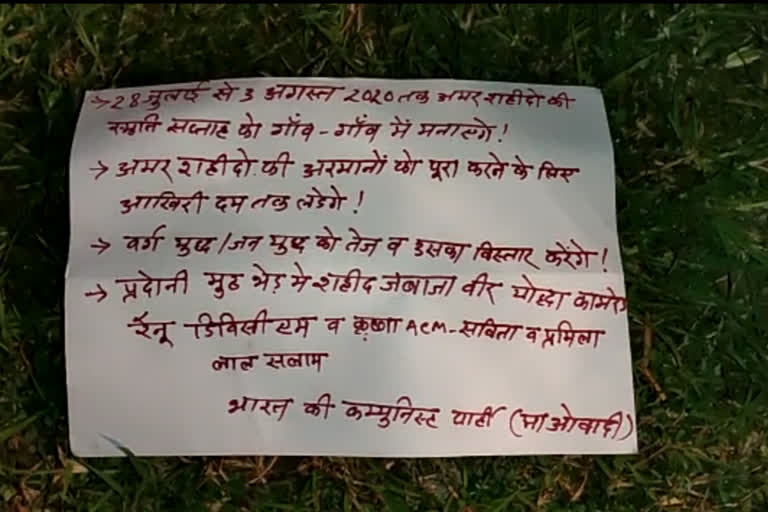 → 28 जुलाई से 3 अगस्त 2020 तक अमर शहीदो की
स्मृति सप्ताह को गाँव - गाँव में मनाएंगे !
→ अमर शहीदो की अरमानों को पूरा करने के लिए
आखिरी दम तक लडेगे !
→ वर्ग युद्ध / जन युद्ध को तेज व उसका विस्तार करेंगे !
→ मुठ भेड़ मे शहीद जांबाजा वीर योद्धा कामरेड
रैनू डिविसी एम व कृष्णा ACM - सविता व प्रमिला
लाल सलाम
भारत की कम्युनिस्ट पार्टी (माओवादी)